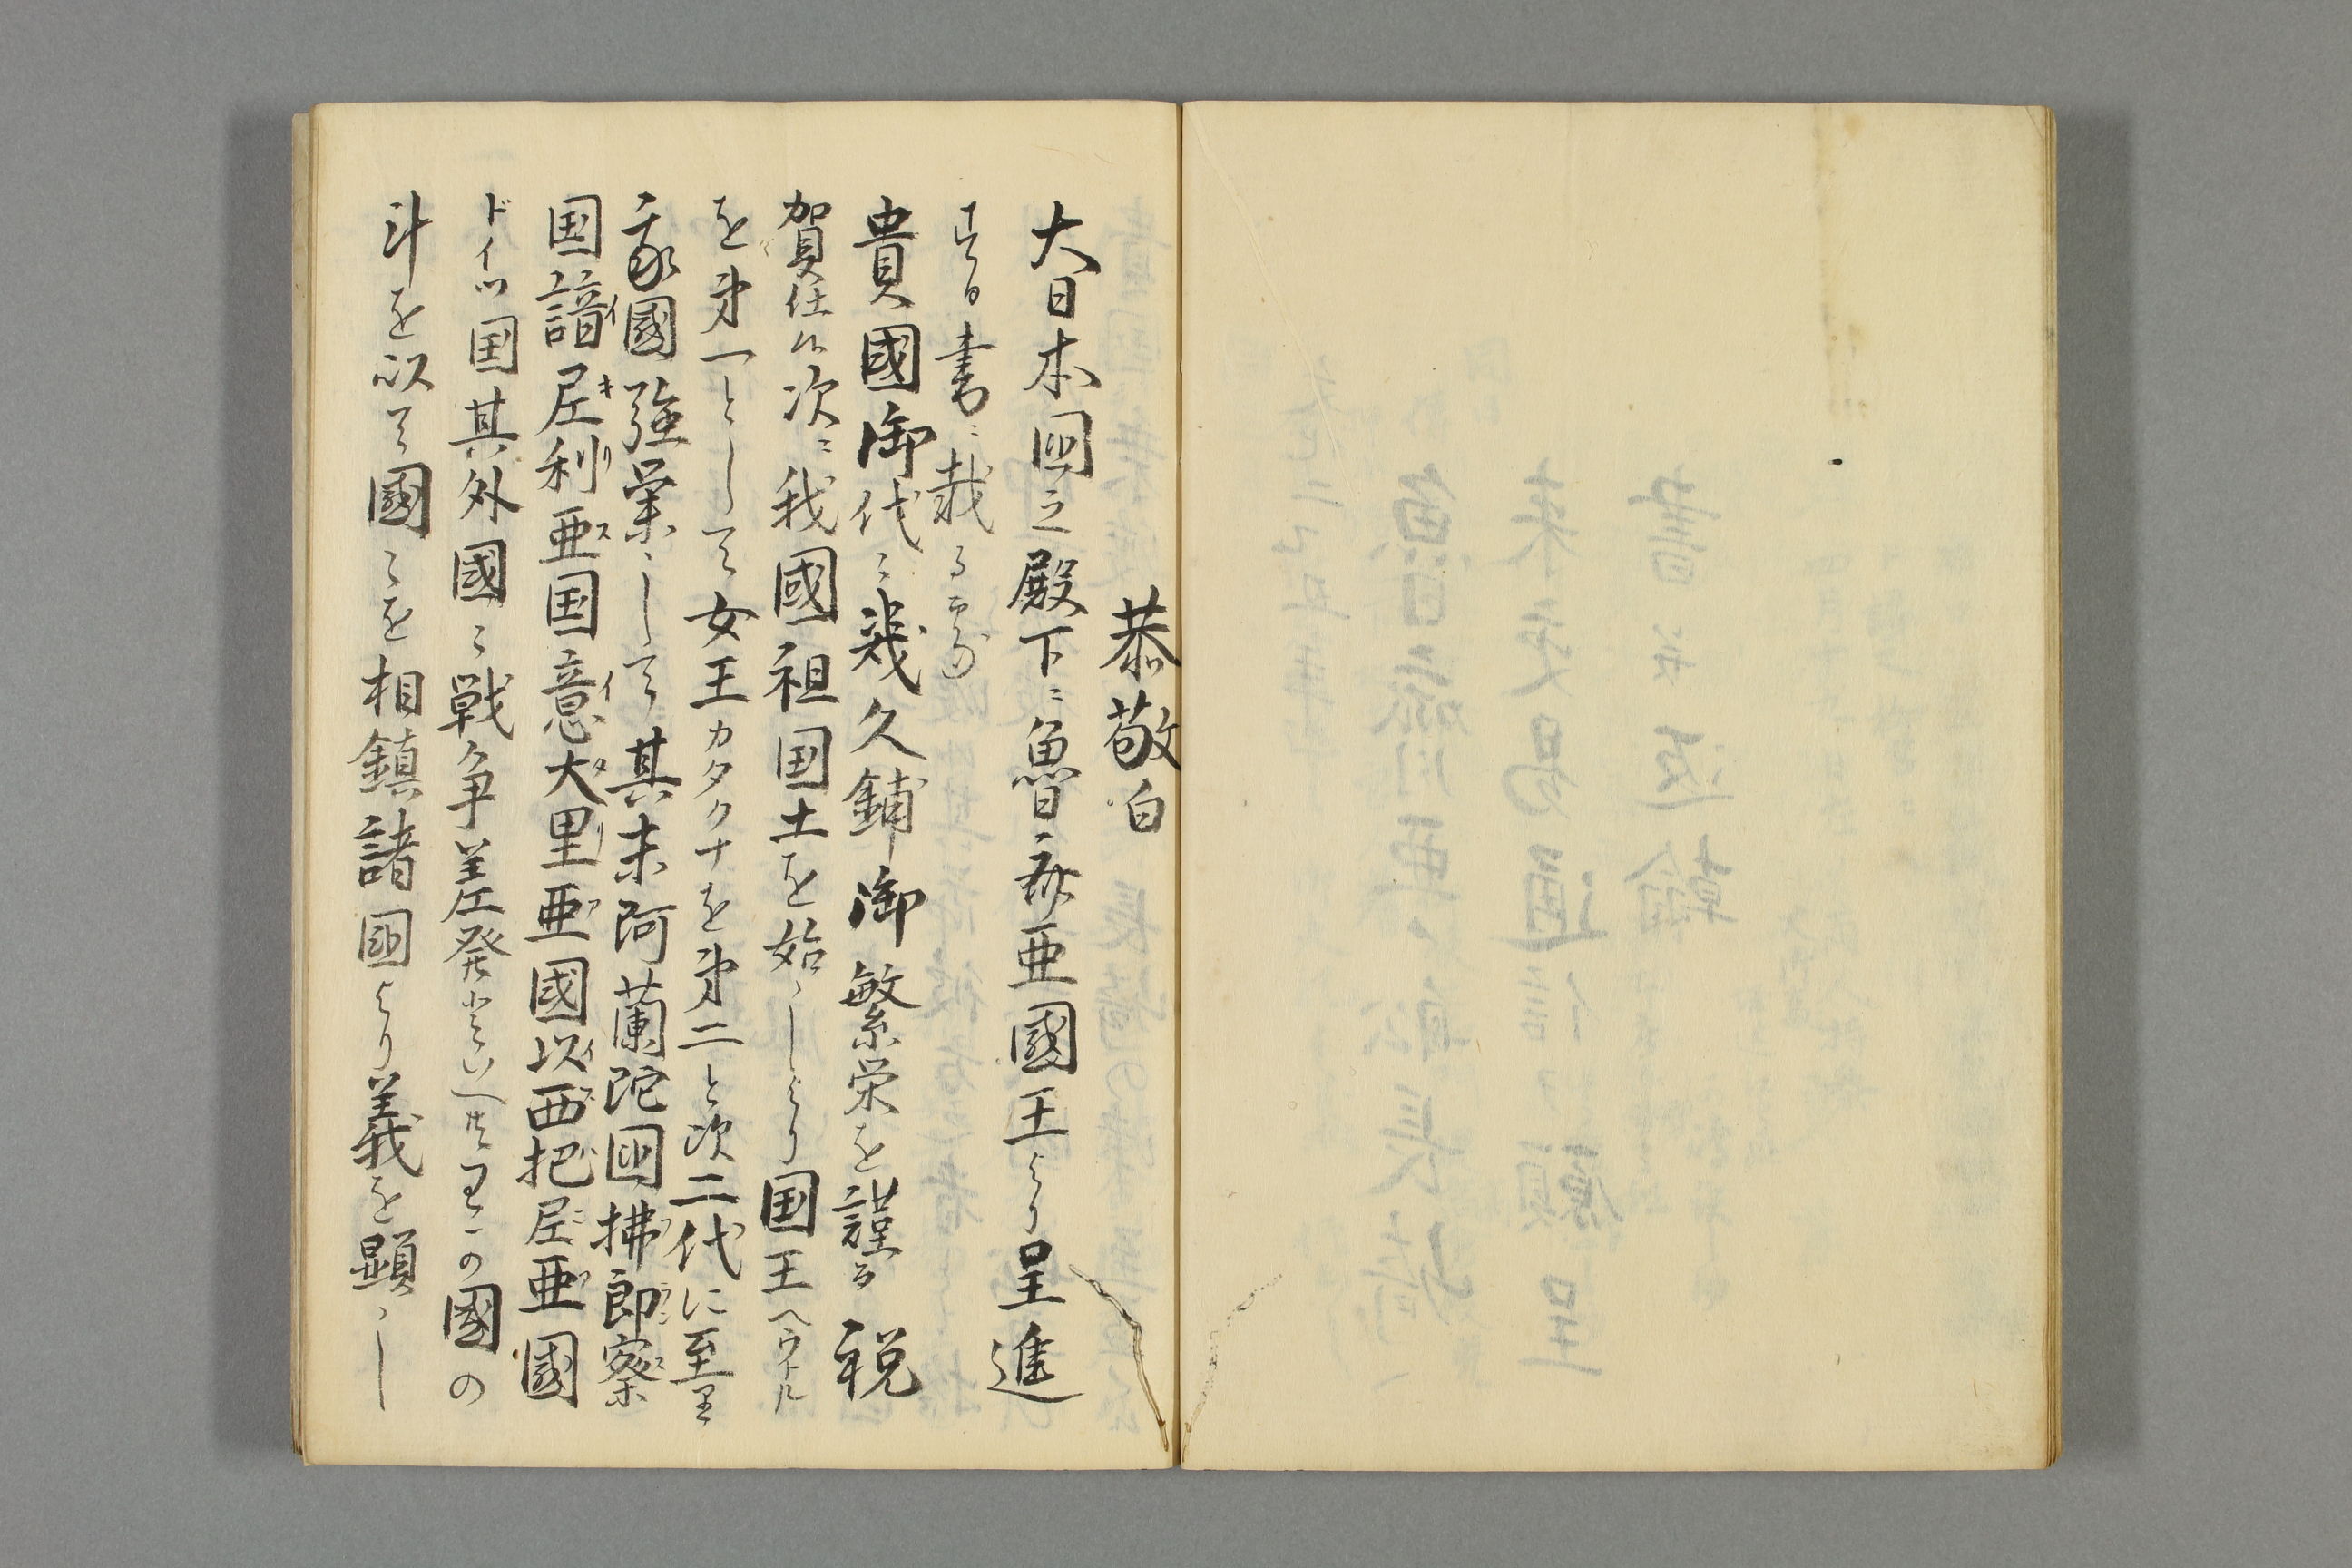 恭敬白
大日本国之殿下ニ魯西亜國王より呈進
する書ニ載る所
貴國御代々幾久鋪御繁栄を謹る税
賀仕候次ニ我國祖国土を始しより国王ヘウトル
を第一として女王カタクナを第二と次二代に至里
我國強栄して其末阿蘭陀国拂郎察
国諳厄利亜国意大里亜國以西把尼亜國
ドイツ国其外國々戦争差発候といへ共わこの國の
計を以て國々を相鎮諸国より義を顕し